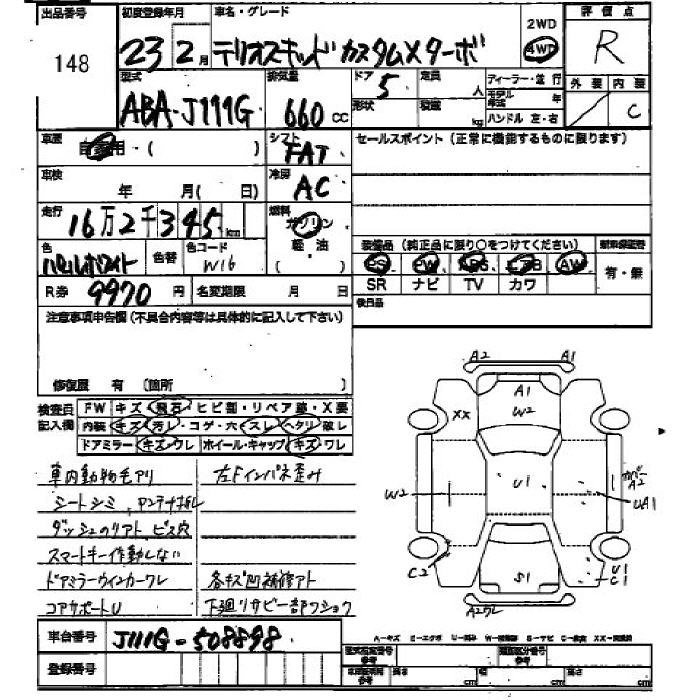 出品番号 初度登録年月 車名・グレード 2WD 評価点
148 23年 2月 テリオスキッド カスタムXターボ 4WD R
型式 排気量 ドア 定員 ディーラー・並行 外装 内装
ABA-J111G 660cc 5 人 モデル年式 年 C
形状 積載 kg ハンドル 左・右
車歴 自家用・( ) シフト FAT セールスポイント(正常に機能するものに限ります)
車検 年 月( 日) 冷房 AC
走行 16万2千345km 燃料 ガソリン
軽・油
( )
装備品(純正品に限り〇をつけてください) 新車保証書
色 パールホワイト 色替 色コード W16
PS PW ABS エアB AW 有・無
SR ナビ TV カワ
R券 9970円 名変期限 月 日 後日品
注意事項申告欄(不具合内容等は具体的に記入して下さい)
修復歴 有(箇所 )
検査員記入欄 FW キズ・飛石・ヒビ割・リペア跡・X要
内装 キズ・汚レ・コゲ・穴・スレ・ヘタリ・破レ
ドアミラー キズ・ワレ ホイール・キャップ キズ・ワレ
車内動物毛アリ 左Fインパネ歪み
シートシミ、アンテナ折レ
ダッシュのリアト ビス穴
スマートキー作動しない
ドアミラーウインカーワレ 各キズ凹補修アト
コアサポートU 下廻リサビ一部フショク
A2 A1
A1
XX W2
W2 U1 カバーA2
UA1
C2 S1 U1
C1
A2ワレ
車台番号 J111G-508898
A-キズ E-エクボ U-凹み W-補修跡 S-サビ C-腐食 XX-交換済
登録番号 型式指定番号 参考 類別区分番号 参考
車体証明 参考 長さ cm 幅 cm 高さ cm